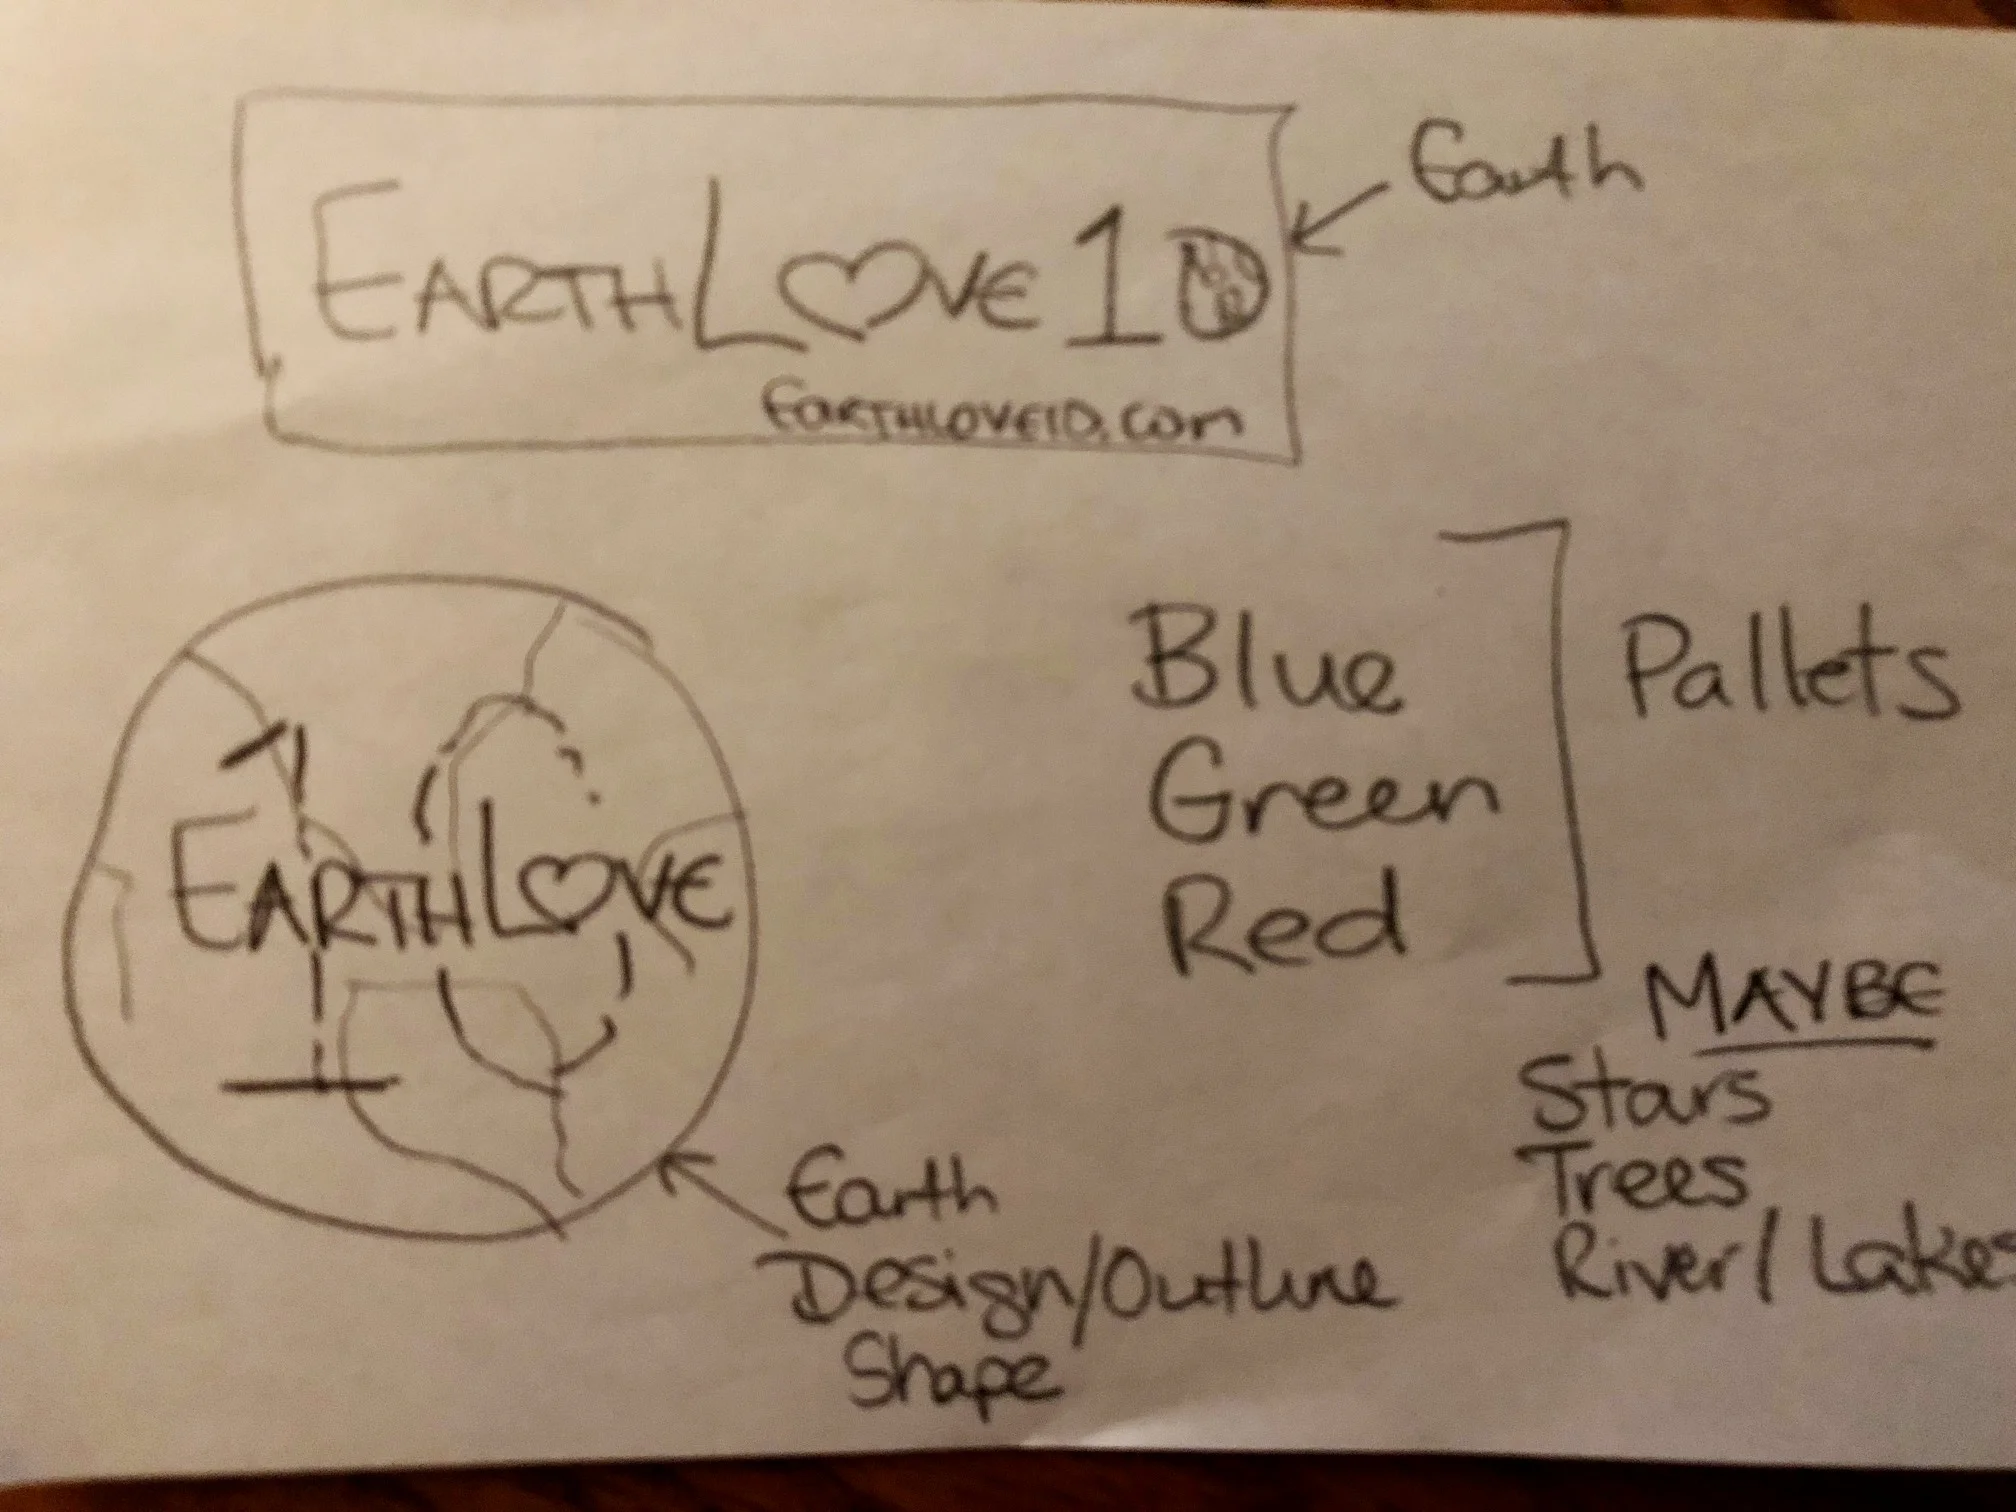 EARTHLOVE 10
Earth
EARTHLOVE10.com
Blue
Green
Red
Pallets
MAYBE
Stars
Trees
River/Lakes
10
EARTHLOVE
Earth
Design/Outline
Shape